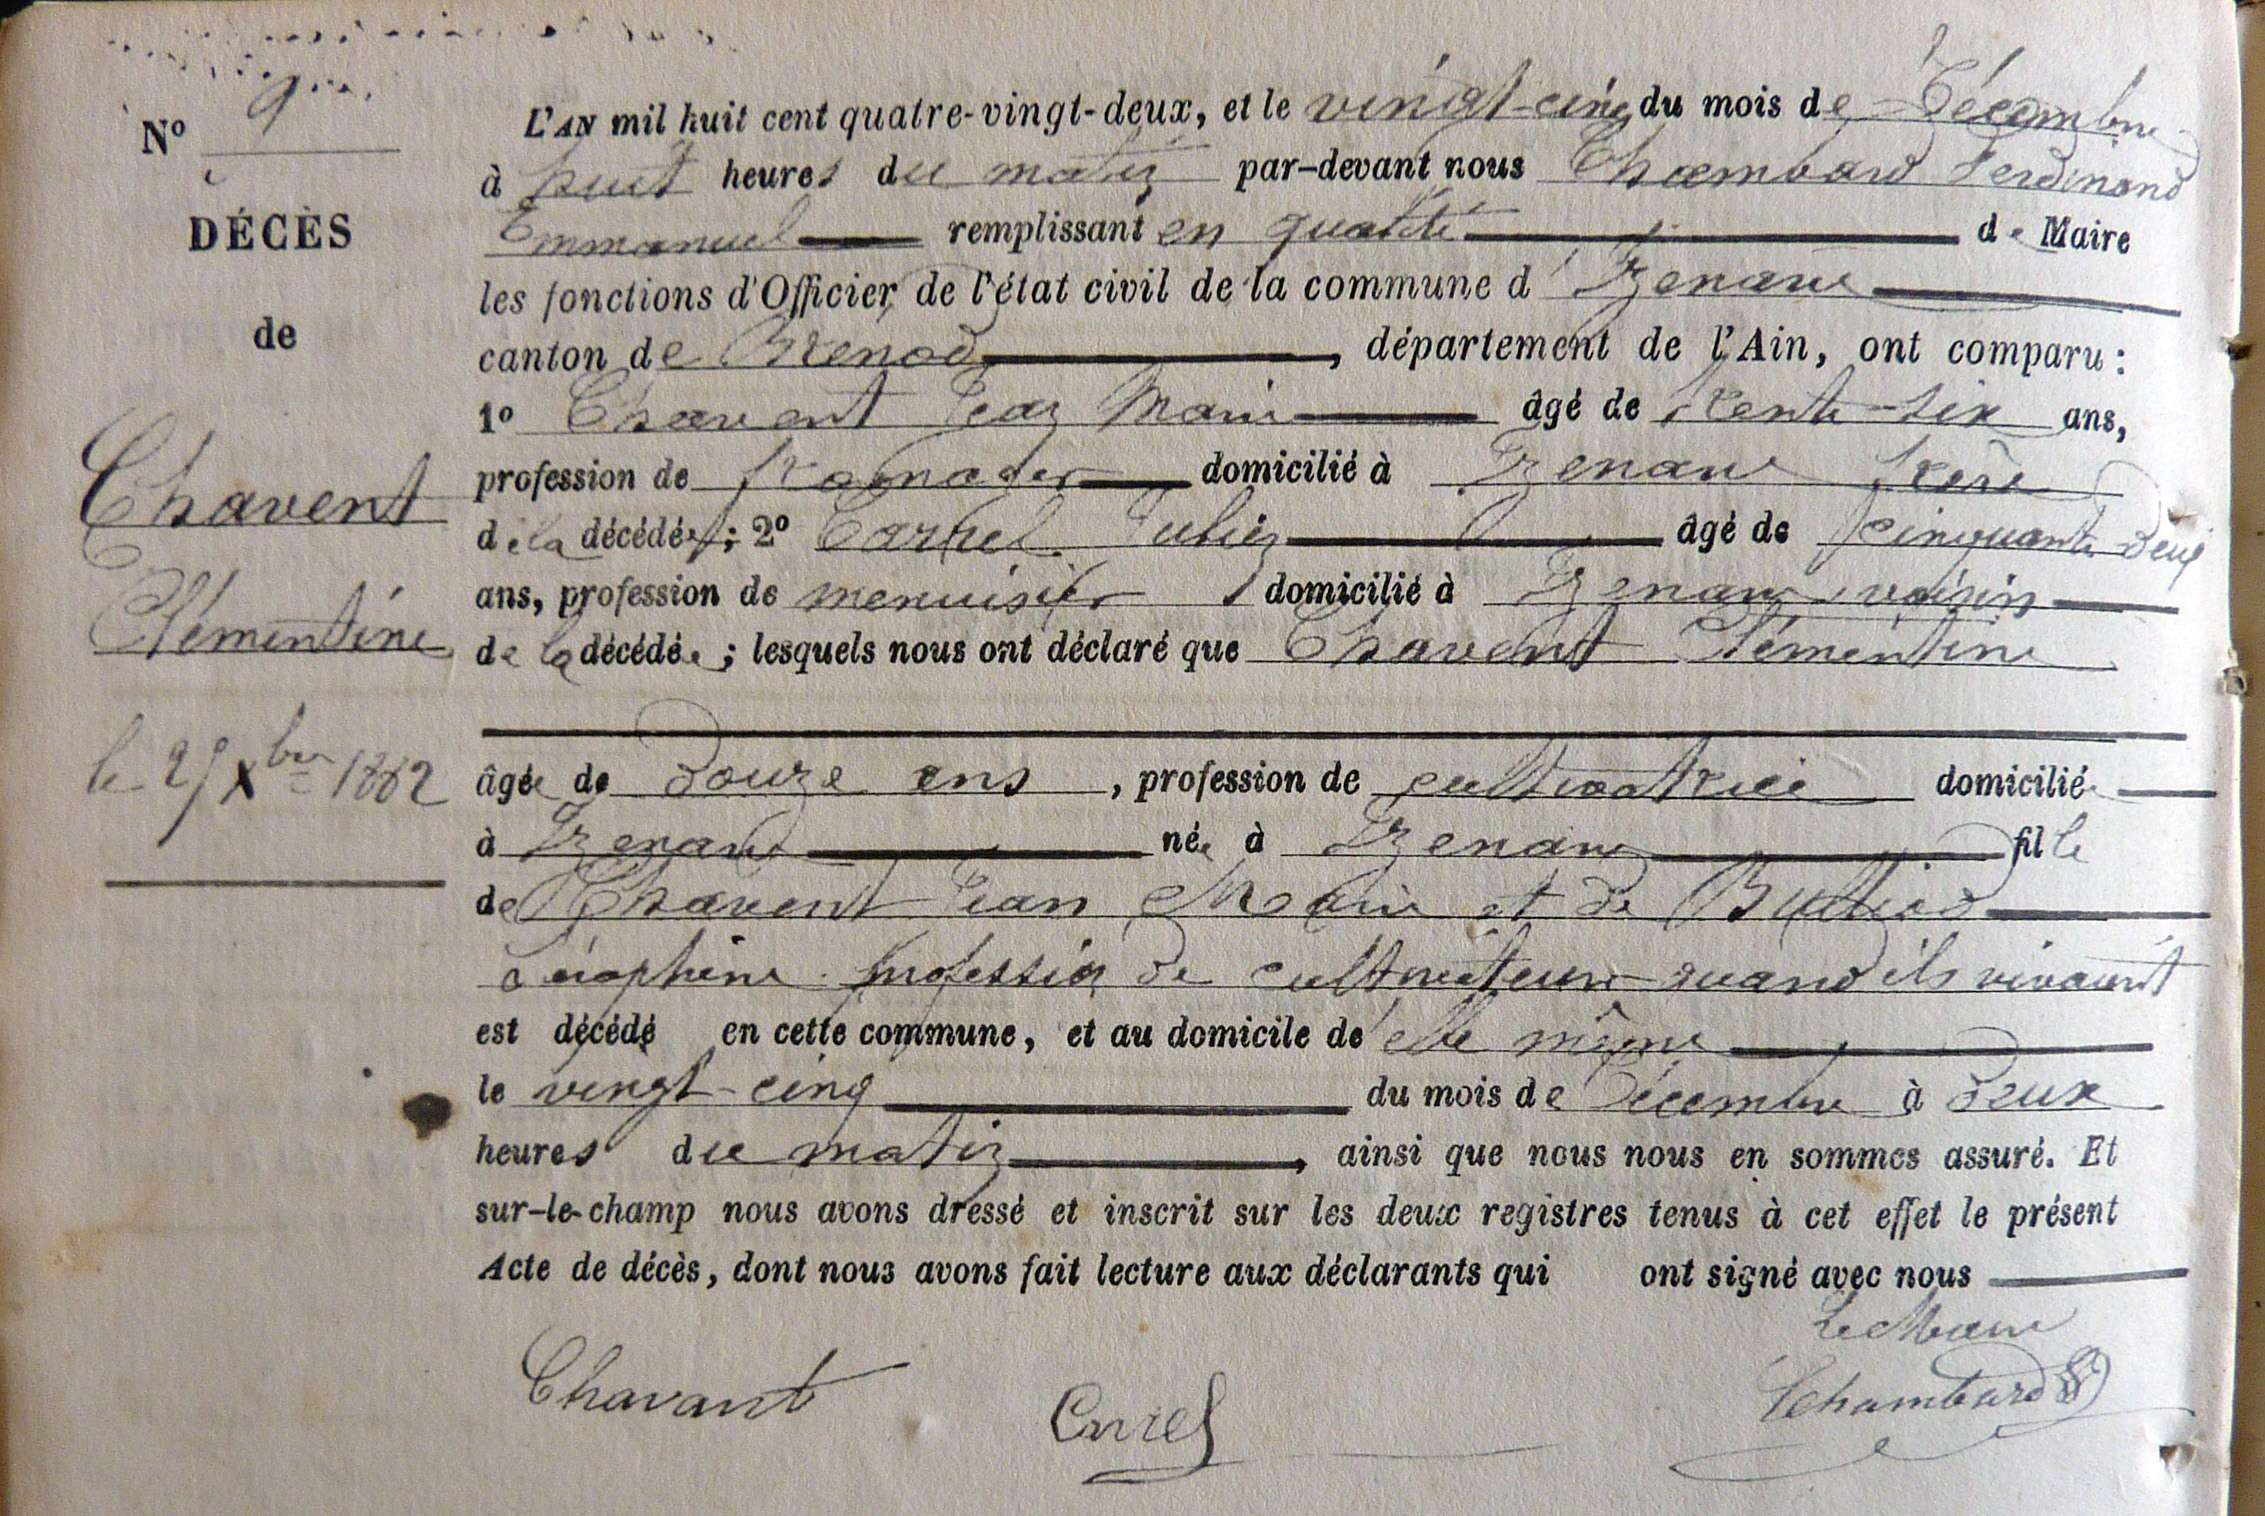 Nº 9
DÉCÈS
de
Chavent
Clémentine
le 25 Xbre 1882
L'AN mil huit cent quatre-vingt-deux, et le vingt-cinq du mois de Décembre
à huit heures du matin par-devant nous Chambard Ferdinand
Emmanuel remplissant en qualité de Maire
les fonctions d'Officier de l'état civil de la commune d'Izenave
canton de Brenod, département de l'Ain, ont comparu :
1º Chavent Jean Marie âgé de trente-six ans,
profession de domicilié à Izenave frère
de la décédée ; 2º Carrel Julien âgé de cinquante deux
ans, profession de menuisier domicilié à Izenave voisin
de la décédée ; lesquels nous ont déclaré que Chavent Clémentine
âgée de douze ans, profession de cultivatrice domiciliée
à Izenave née à Izenave fille
de Chavent Jean Marie et de Bulliod
Séraphine profession de cultivateurs quand ils vivaient
est décédé en cette commune, et au domicile de elle même
le vingt-cinq du mois de Décembre à deux
heures du matin, ainsi que nous nous en sommes assuré. Et
sur-le-champ nous avons dressé et inscrit sur les deux registres tenus à cet effet le présent
Acte de décès, dont nous avons fait lecture aux déclarants qui ont signé avec nous
Le Maire
Chavant Carrel Chambard